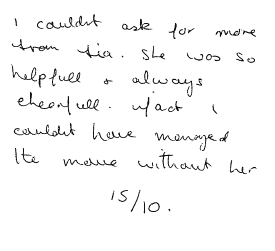 I couldnt ask for more
from Lia. She was so
helpfull & always
cheerfull. infact I
couldnt have managed
the move without her
15/10.